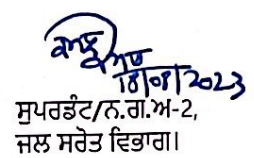 18/08/2023
ਸੁਪਰਡੰਟ/ਨ.ਗ.ਅ-2,
ਜਲ ਸਰੋਤ ਵਿਭਾਗ।